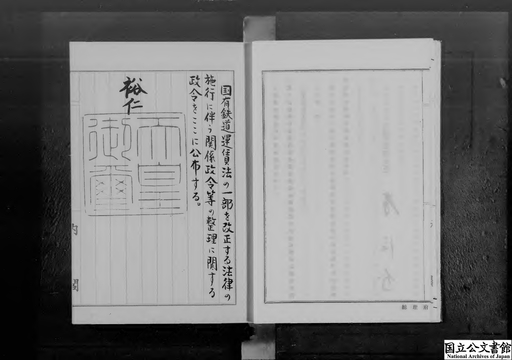 国有鉄道運賃法の一部を改正する法律の
施行に伴う関係政令等の整理に関する
政令をここに公布する。
裕仁
天皇
御璽
内閣
国立公文書館
National Archives of Japan